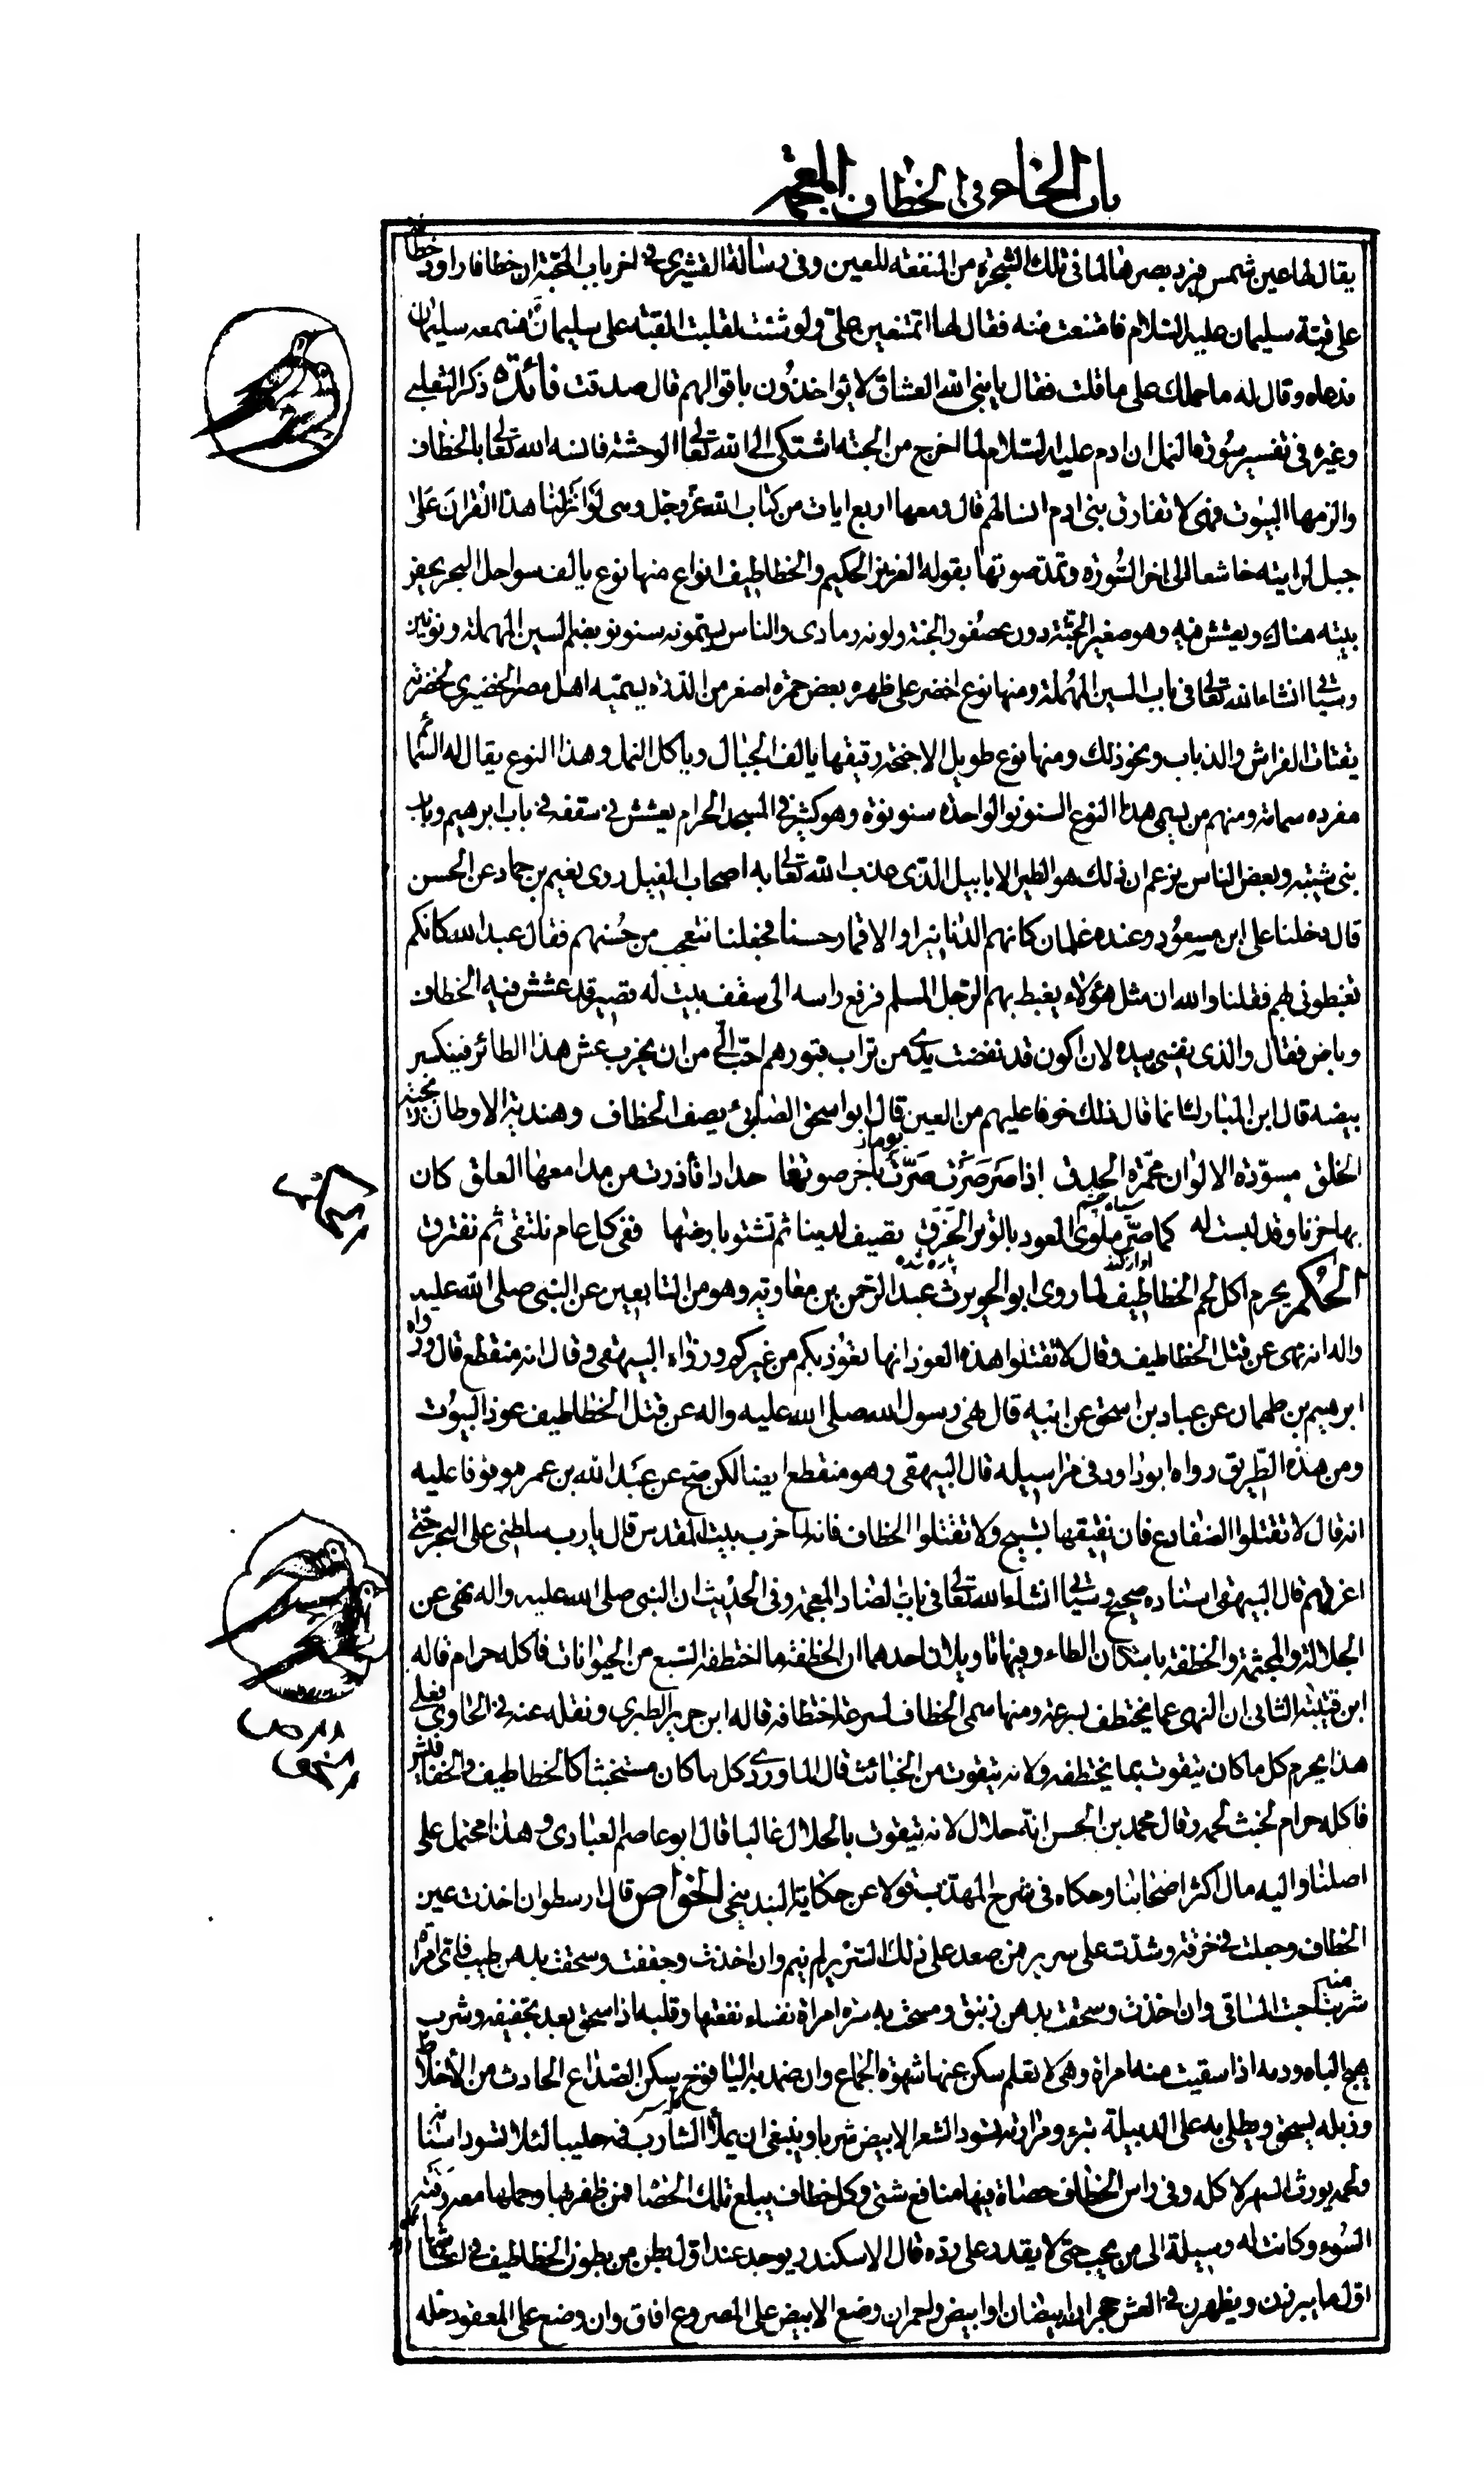 باب الخاء في الخطاف المعجمة
يقال لها عين شمس فيرد بصرها لما في تلك الشجرة من المنفعة للعين وفي رسالة القشيري في اخر باب المحبة ان خطافا راود خطافة
على قبة سليمان عليه السلام فامتنعت منه فقال لها اتمتنعين علىّ ولو شئت لقلبت القبة على سليمان فسمعه سليمان
فدعاه وقال له ما حملك على ما قلت فقال يا نبي الله العشاق لا يؤاخذون باقوالهم قال صدقت فائدة ذكر الثعلبي
وغيره في تفسير سورة النمل ان ادم عليه السلام لما اخرج من الجنة اشتكى الى الله تعالى الوحشة فانسه الله تعالى بالخطاف
والزمها البيوت فهي لا تفارق بني ادم انسا لهم قال ومعها اربع ايات من كتاب الله عز وجل وهي لو انزلنا هذا القران على
جبل لرايته خاشعا الى اخر السورة وتمد صوتها بقوله العزيز الحكيم والخطاطيف انواع منها نوع يالف سواحل البحر يحفر
بيته هناك ويعشش فيه وهو صغير الجثة دون عصفور الجنة ولونه رمادى والناس يسمونه سنونو بضم السين المهملة ونونين
وسياتي انشاء الله تعالى في باب السين المهملة ومنها نوع اخضر على ظهره بعض حمرة اصغر من الدرة يسميه اهل مصر الخضيرى لخضرته
يقتات الفراش والذباب ونحو ذلك ومنها نوع طويل الاجنحة رقيقها يالف الجبال وياكل النمل وهذا النوع يقال له السمائم
مفرده سمامة ومنهم من يسمى هذا النوع السنونو الواحدة سنونوة وهو كثير في المسجد الحرام يعشش في سقفه في باب ابرهيم وباب
بني شيبة وبعض الناس يزعم ان ذلك هو الطير الابابيل الذى عذب الله تعالى به اصحاب الفيل روى نعيم بن حماد عن الحسن
قال دخلنا على ابن مسعود وعنده غلمان كانهم الدنانير او الاقمار حسنا فجعلنا نتعجب من حسنهم فقال عبد الله كانكم
تغبطوني بهم فقلنا والله ان مثل هؤلاء يغبط بهم الرجل المسلم فرفع راسه الى سقف بيت له قصير قد عشش فيه الخطاف
وباض فقال والذى نفسي بيده لان اكون قد نفضت يدى من تراب قبورهم احب الىّ من ان يخرب عش هذا الطائر فينكسر
بيضه قال ابن المبارك انما قال ذلك خوفا عليهم من العين قال ابو اسحق الصابئ يصف الخطاف وهندية الاوطان زنجية
الخلق مسودة الالوان محمرة الحدق اذا صرصرت صرت باخر صوتها حدادا فأذرت من مدامعها العلق كان
بها حزنا وقد لبست له كما صر ملوى العود بالوتر الحزق تصيف لدينا ثم تشتو بارضها ففي كل عام نلتقى ثم نفترق
الحكم يحرم اكل لحم الخطاطيف لما روى ابو الحويرث عبد الرحمن بن معاوية وهو من التابعين عن النبي صلى الله عليه
واله انه نهى عن قتل الخطاطيف وقال لا تقتلوا هذه العوذ انها تعوذ بكم من غيركم ورواه البيهقى وقال انه منقطع قال ورواه
ابرهيم بن طهمان عن عباد بن اسحق عن ابيه قال نهى رسول الله صلى الله عليه واله عن قتل الخطاطيف عوذ البيوت
ومن هذه الطريق رواه ابو داود في مراسيله قال البيهقى وهو منقطع ايضا لكن صح عن عبد الله بن عمر موقوفا عليه
انه قال لا تقتلوا الضفادع فان نقيقها تسبيح ولا تقتلوا الخطاف فانه لما خرب بيت المقدس قال يا رب سلطني على البحر حتى
اغرقهم قال البيهقى اسناده صحيح وسياتي انشاء الله تعالى في باب الضاد المعجمة وفي الحديث ان النبي صلى الله عليه واله نهى عن
الجلالة والمجثمة والخطفة باسكان الطاء وفيها تاويلان احدهما ان الخطفة ما اختطفه السبع من الحيوانات فأكله حرام قاله
ابن قتيبة الثاني ان النهى عما يختطف بسرعة ومنها سمى الخطاف لسرعة اختطافه قاله ابن جرير الطبرى ونقله عنه في الحاوى فعلى
هذا يحرم كل ما كان يتقوت بما يختطفه ولانه يتقوت من الخبائث قال الماوردى كل ما كان مستخبثا كالخطاطيف والخفافيش
فاكله حرام لخبث لحمه وقال محمد بن الحسن انه حلال لانه يتقوت بالحلال غالبا قال ابو عاصم العبادى وهذا محتمل على
اصلنا واليه مال اكثر اصحابنا وحكاه في شرح المهذب قولا عن حكاية البندنيجى الخواص قال ارسطو ان اخذت عين
الخطاف وجعلت في خرقة وشدت على سرير فمن صعد على ذلك السرير لم ينم وان اخذت وجففت وسحقت بدهن طيب فاى امراة
شربت منه احبت الساقى وان اخذت وسحقت بدهن زنبق ومسحت به سرة امراة نفساء نفعتها وقلبه اذا سحق بعد تجفيفه وشرب
هيج الباه ودمه اذا سقيت منه امراة وهى لا تعلم سكن عنها شهوة الجماع وان ضمد به اليافوخ سكن الصداع الحادث من الأخلاط
وزبله يسحق ويطلى به على الدبيلة تبرء ومرارته تسود الشعر الابيض شربا وينبغى ان يملأ الشارب فمه حليبا لئلا تسود اسنانه
ولحمه يورث السهر لاكله وفي راس الخطاف حصاة فيها منافع شتى وكل خطاف يبلع تلك الحصا فمن ظفر بها وحملها معه وقته
السوء وكانت له وسيلة الى من يحب حتى لا يقدر على رده قال الاسكندر يوجد عند اول بطن من بطون الخطاطيف في اعشاشها
اول ما يبرزن ويظهرن في العش حجران ابيضان او ابيض واحمر ان وضع الابيض على المصروع افاق وان وضع على المعقود حله